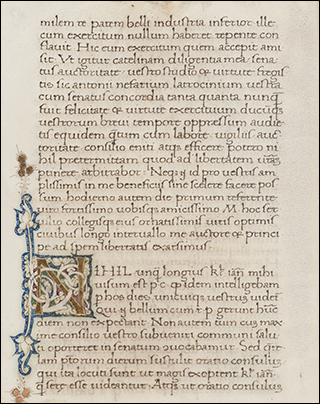 milem te patem belli industria inferior ille
cum exercitum nullum haberet repente con
flavit Hic eum exercitum quem accepit ami
sit. Vt igitur catelinam diligentia mea sena
tus auctoritate vestro studio & virtute fregis
tis sic antonii nefarium latrocinium vestra
cum senatus concordia tanta quanta nunq̃
fuit felicitate & virtute exercituum ducũq;
vestrorum brevi tempore oppressum audie
tis equidem q̃tum cum labore vigiliis auc
toritate consilio eniti atq; efficere potero ni
hil pretermittam quod ad libertatem
punere arbitrabor Neq; id pro vestris am
plissimis in me beneficiis sine scelere facere pos
sum hodierno autem die primum referente
viro fortissimo vobisq; amicissimo M hoc ser
vilio collegisq; eius ornatissimis viris optimis
civibus longo intervallo me auctore & princi
pe ad spem libertatis exarsimus
NIHIL unq̃ longius kl̃ iañ mihi
visum est p c q̃ idem intelligebam
p hos dies unicuiq; vestrũ videri
Qui .n. bellum cum r p gerunt hunc
diem non expectant Non autem tum cũs max
me consilio vestro subveniri communi salu
ti oporteret in senatum vocabamur Sed q̃ri
lam pto rum dierum sustulit oratio consulis
qui ita locuti sunt ut magis exoptent kl̃ iañ
q̃ sere esse videantur Atq; ut oratio consulũ